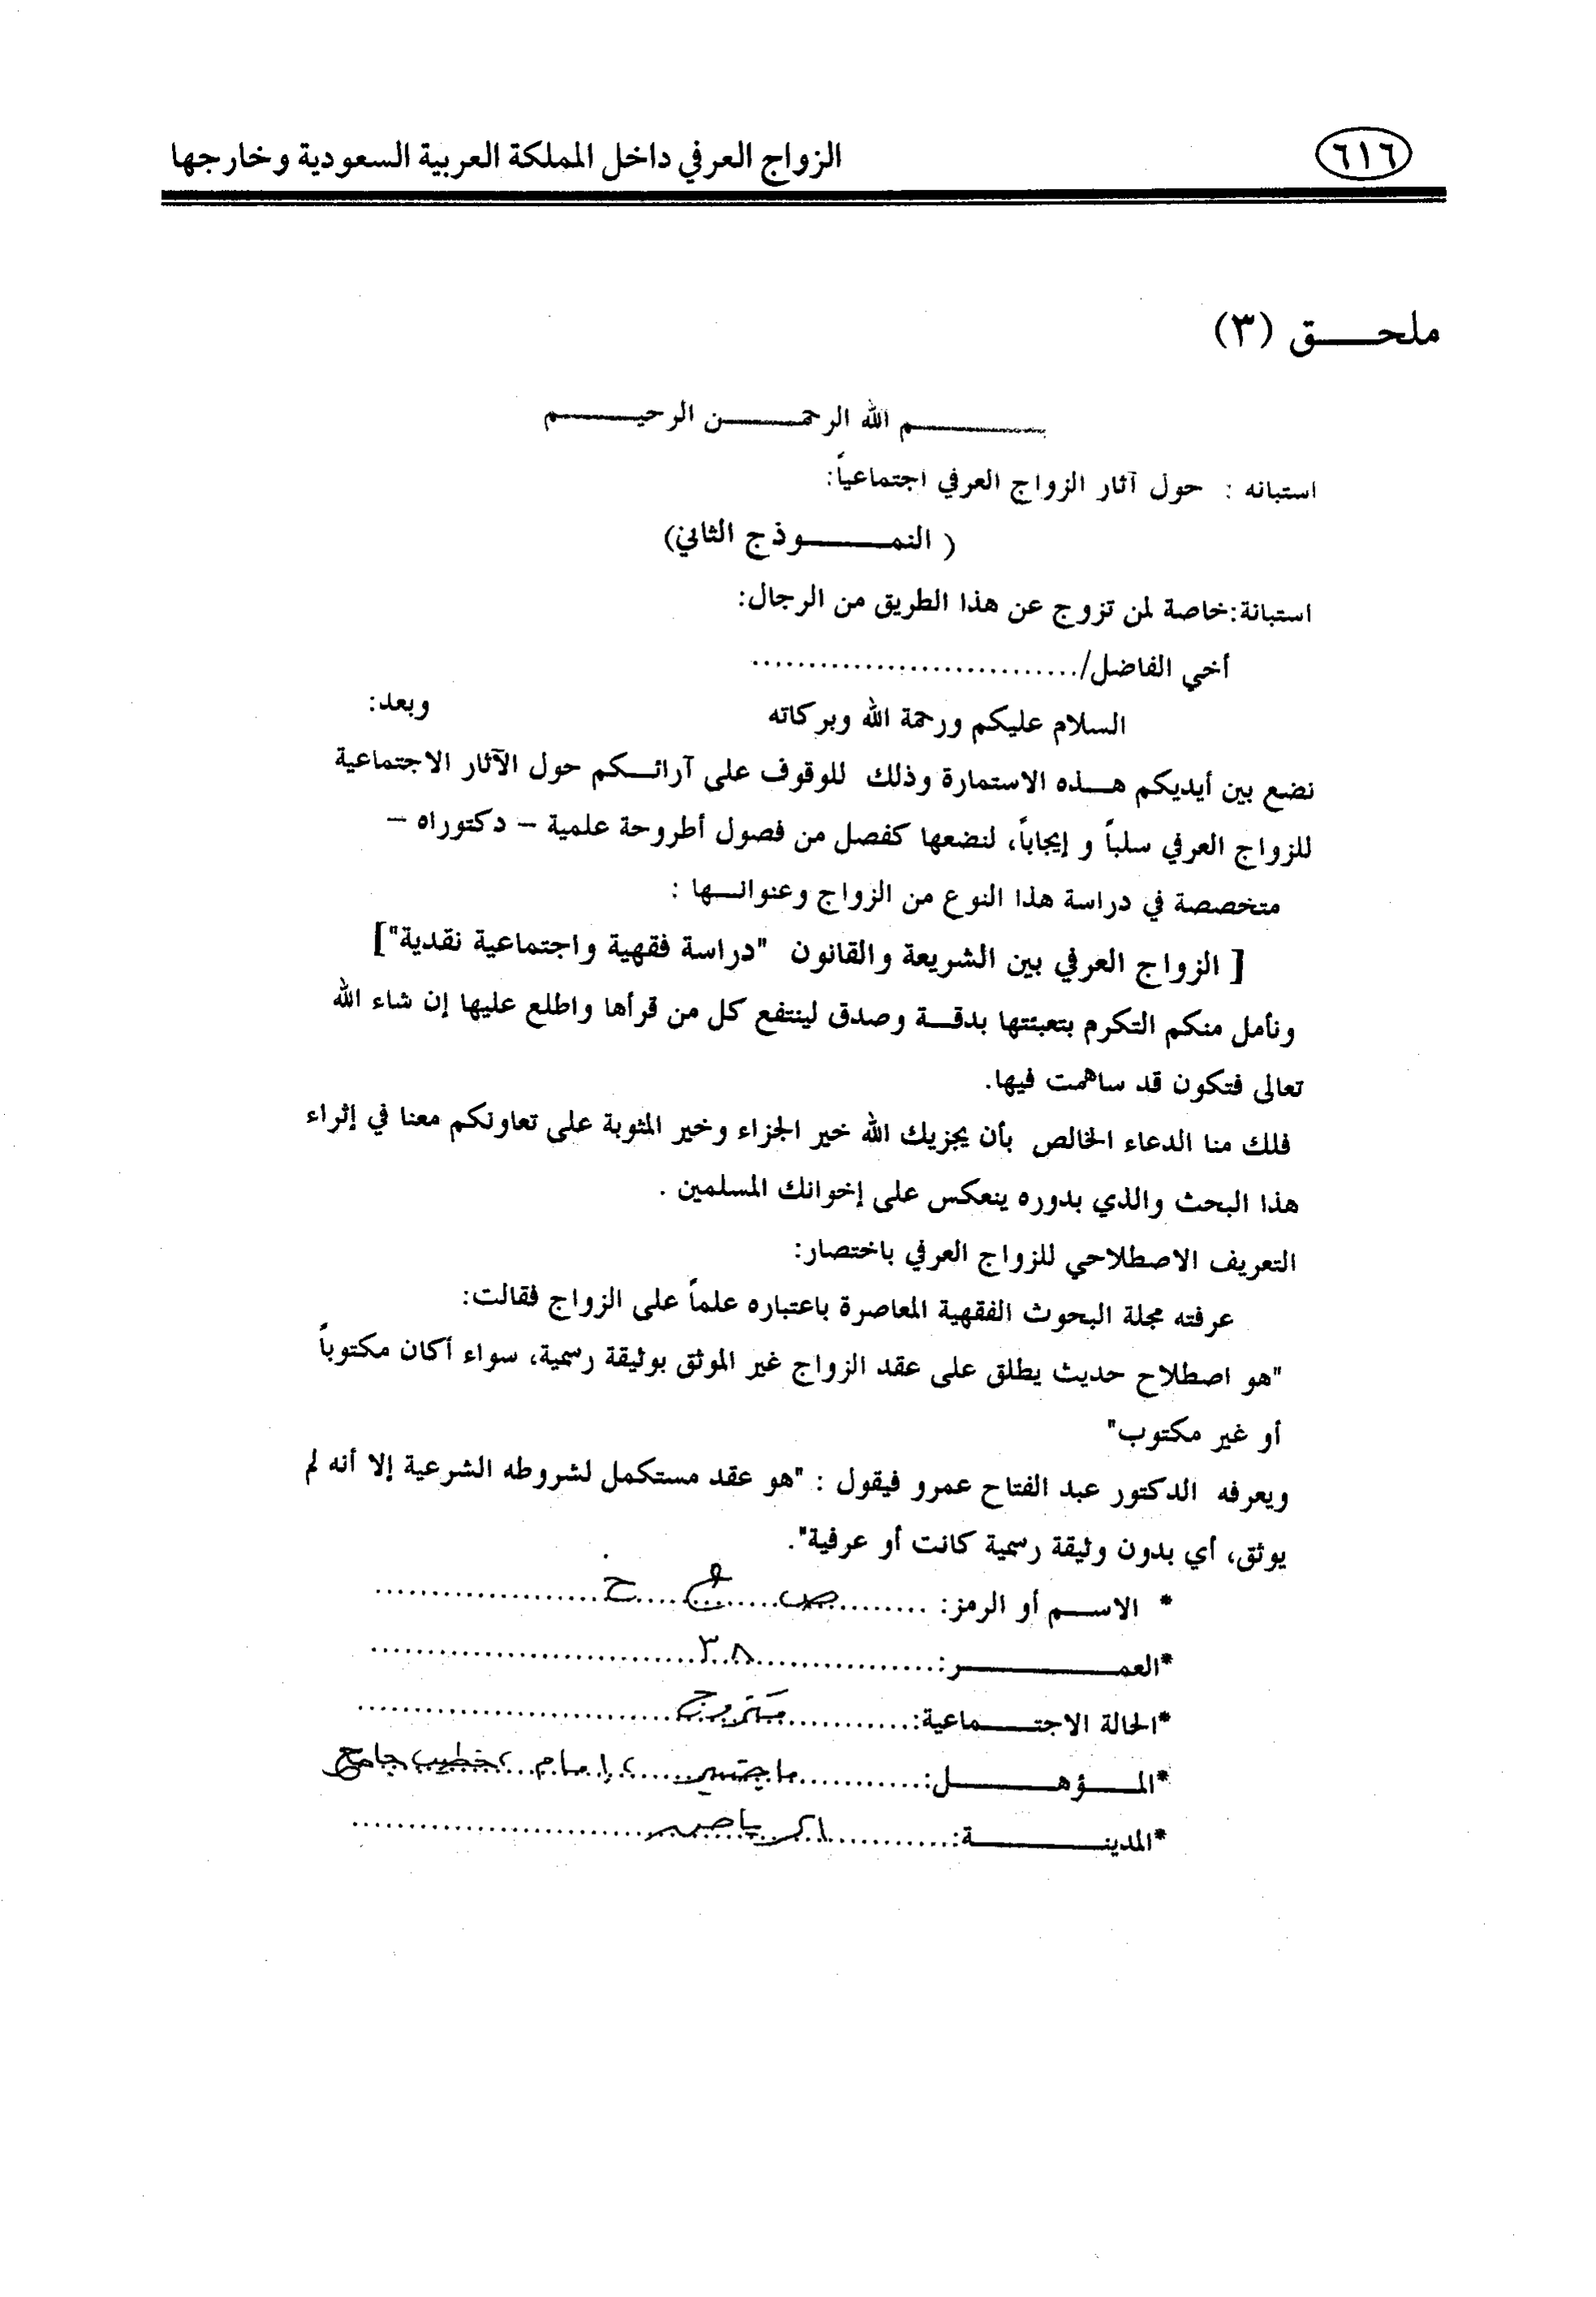 ٦١٦
الزواج العرفي داخل المملكة العربية السعودية وخارجها
ملحـــق (٣)
بـــــــم الله الرحمـــــن الرحيـــــم
استبانه : حول آثار الزواج العرفي اجتماعياً:
( النمـــــوذج الثاني)
استبانة:خاصة لمن تزوج عن هذا الطريق من الرجال:
أخي الفاضل/.............................
السلام عليكم ورحمة الله وبركاته وبعد:
نضع بين أيديكم هـــذه الاستمارة وذلك للوقوف على آرائـــكم حول الآثار الاجتماعية
للزواج العرفي سلباً و إيجاباً، لنضعها كفصل من فصول أطروحة علمية – دكتوراه –
متخصصة في دراسة هذا النوع من الزواج وعنوانـــها :
[ الزواج العرفي بين الشريعة والقانون "دراسة فقهية واجتماعية نقدية"]
ونأمل منكم التكرم بتعبئتها بدقـــة وصدق لينتفع كل من قرأها واطلع عليها إن شاء الله
تعالى فتكون قد ساهمت فيها.
فلك منا الدعاء الخالص بأن يجزيك الله خير الجزاء وخير المثوبة على تعاونكم معنا في إثراء
هذا البحث والذي بدوره ينعكس على إخوانك المسلمين .
التعريف الاصطلاحي للزواج العرفي باختصار:
عرفته مجلة البحوث الفقهية المعاصرة باعتباره علماً على الزواج فقالت:
"هو اصطلاح حديث يطلق على عقد الزواج غير الموثق بوثيقة رسمية، سواء أكان مكتوباً
أو غير مكتوب"
ويعرفه الدكتور عبد الفتاح عمرو فيقول : "هو عقد مستكمل لشروطه الشرعية إلا أنه لم
يوثق، أي بدون وثيقة رسمية كانت أو عرفية".
* الاســـم أو الرمز: ......................
*العمـــــــــر: ......٣٨......
*الحالة الاجتـــــماعية:......متزوج......
*المـــؤهـــــــل:......ماجستير، إمام، خطيب جامع
*المدينـــــــــة:......الرياض......